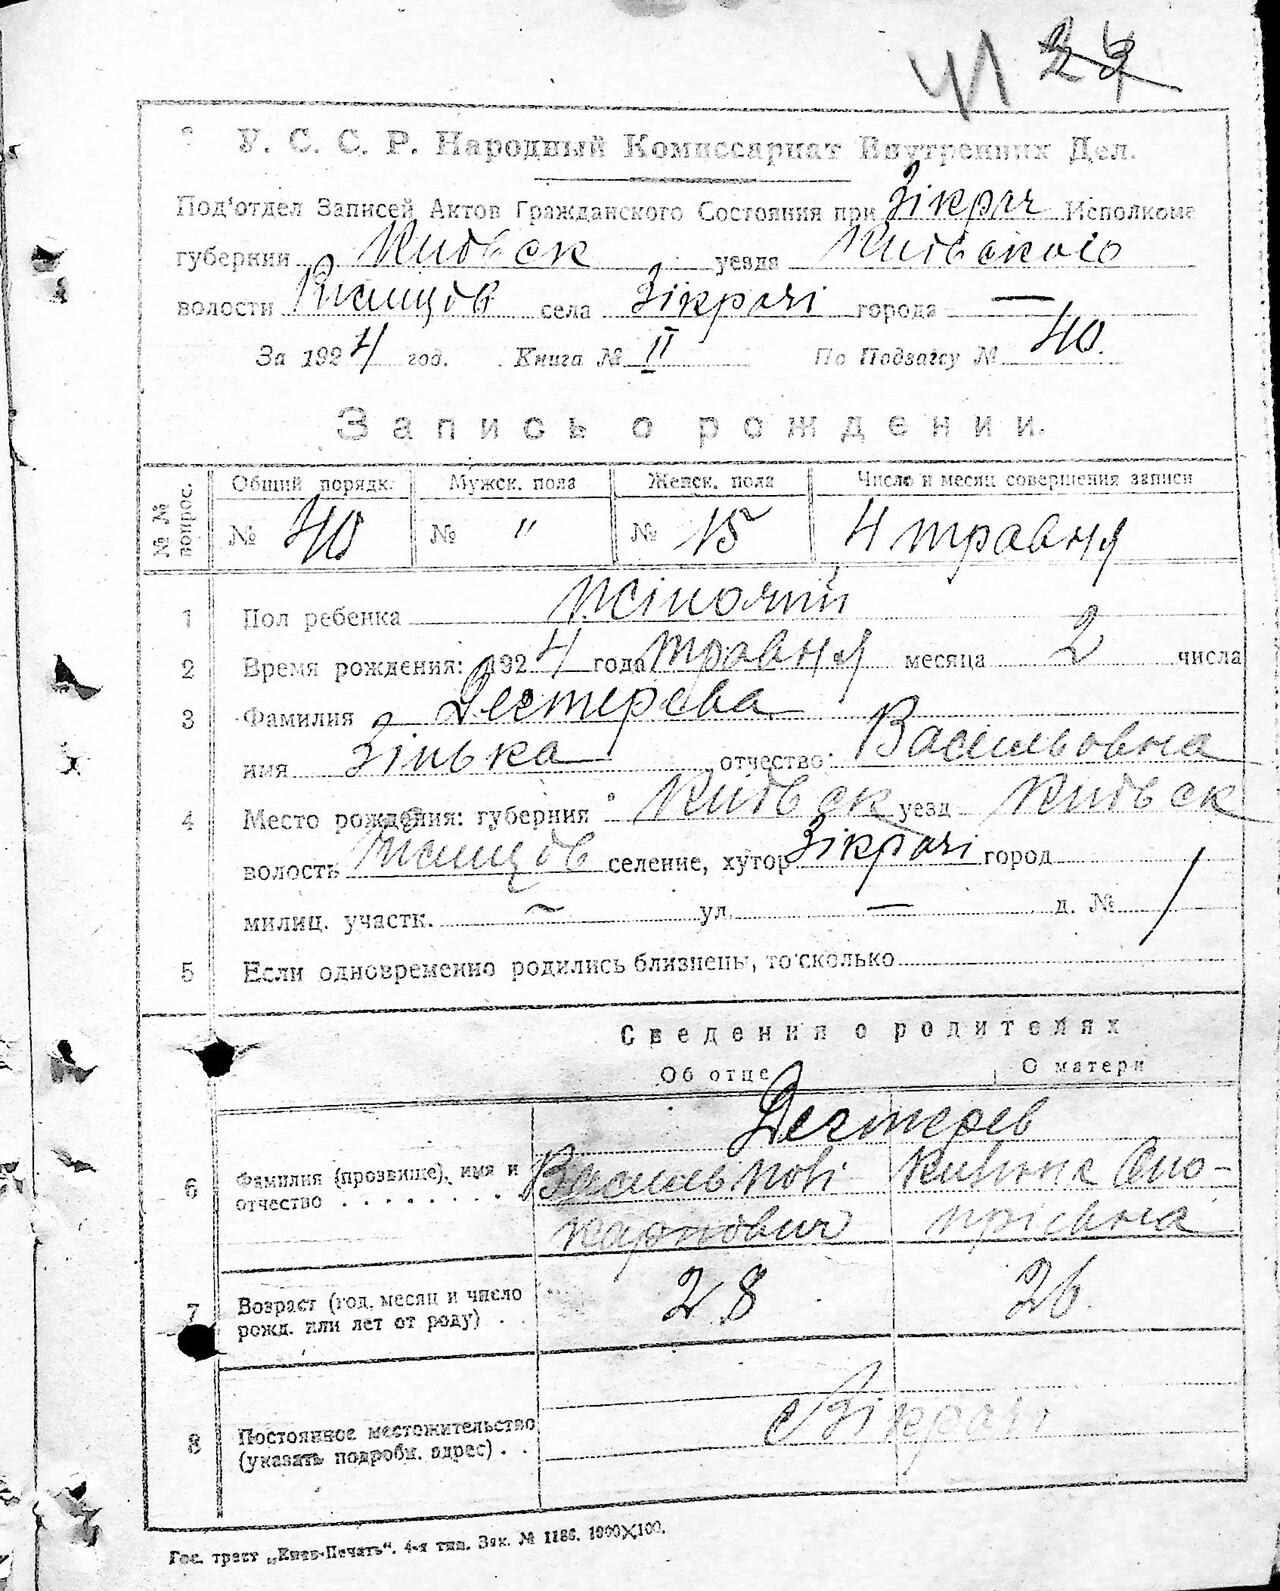 41 34
У. С. С. Р. Народный Комиссариат Внутренних Дел.
Под'отдел Записей Актов Гражданского Состояния при Зікрач Исполкоме
губернии Київськ уезда Київського
волости Ржищів села Зікрачі города —
За 1924 год. Книга № II По Подзагсу № 40.
Запись о рождении.
№ № вопрос. Общий порядк. Мужск. пола Женск. пола Число и месяц совершения записи
№ 40 № " № 15 4 травня
1 Пол ребенка жіночий
2 Время рождения: 1924 года травня месяца 2 числа
3 Фамилия Дегтерева
имя Зінька отчество: Васильовна
4 Место рождения: губерния Київськ уезд Київськ
волость Ржищів селение, хутор Зікрачі город
милиц. участк. — ул — д. №
5 Если одновременно родились близнецы, то сколько
Сведения о родителях
Об отце О матери
Дегтерев
6 Фамилия (прозвище), имя и отчество . . . . . . . Василь Полі-
карпович
7 Возраст (год, месяц и число рожд. или лет от роду) . . 28 26.
8 Постоянное местожительство (указать подробн. адрес) . . Зікрачі
Гос. трест „Киев-Печать". 4-я тип. Зак. № 1186. 1000×100.